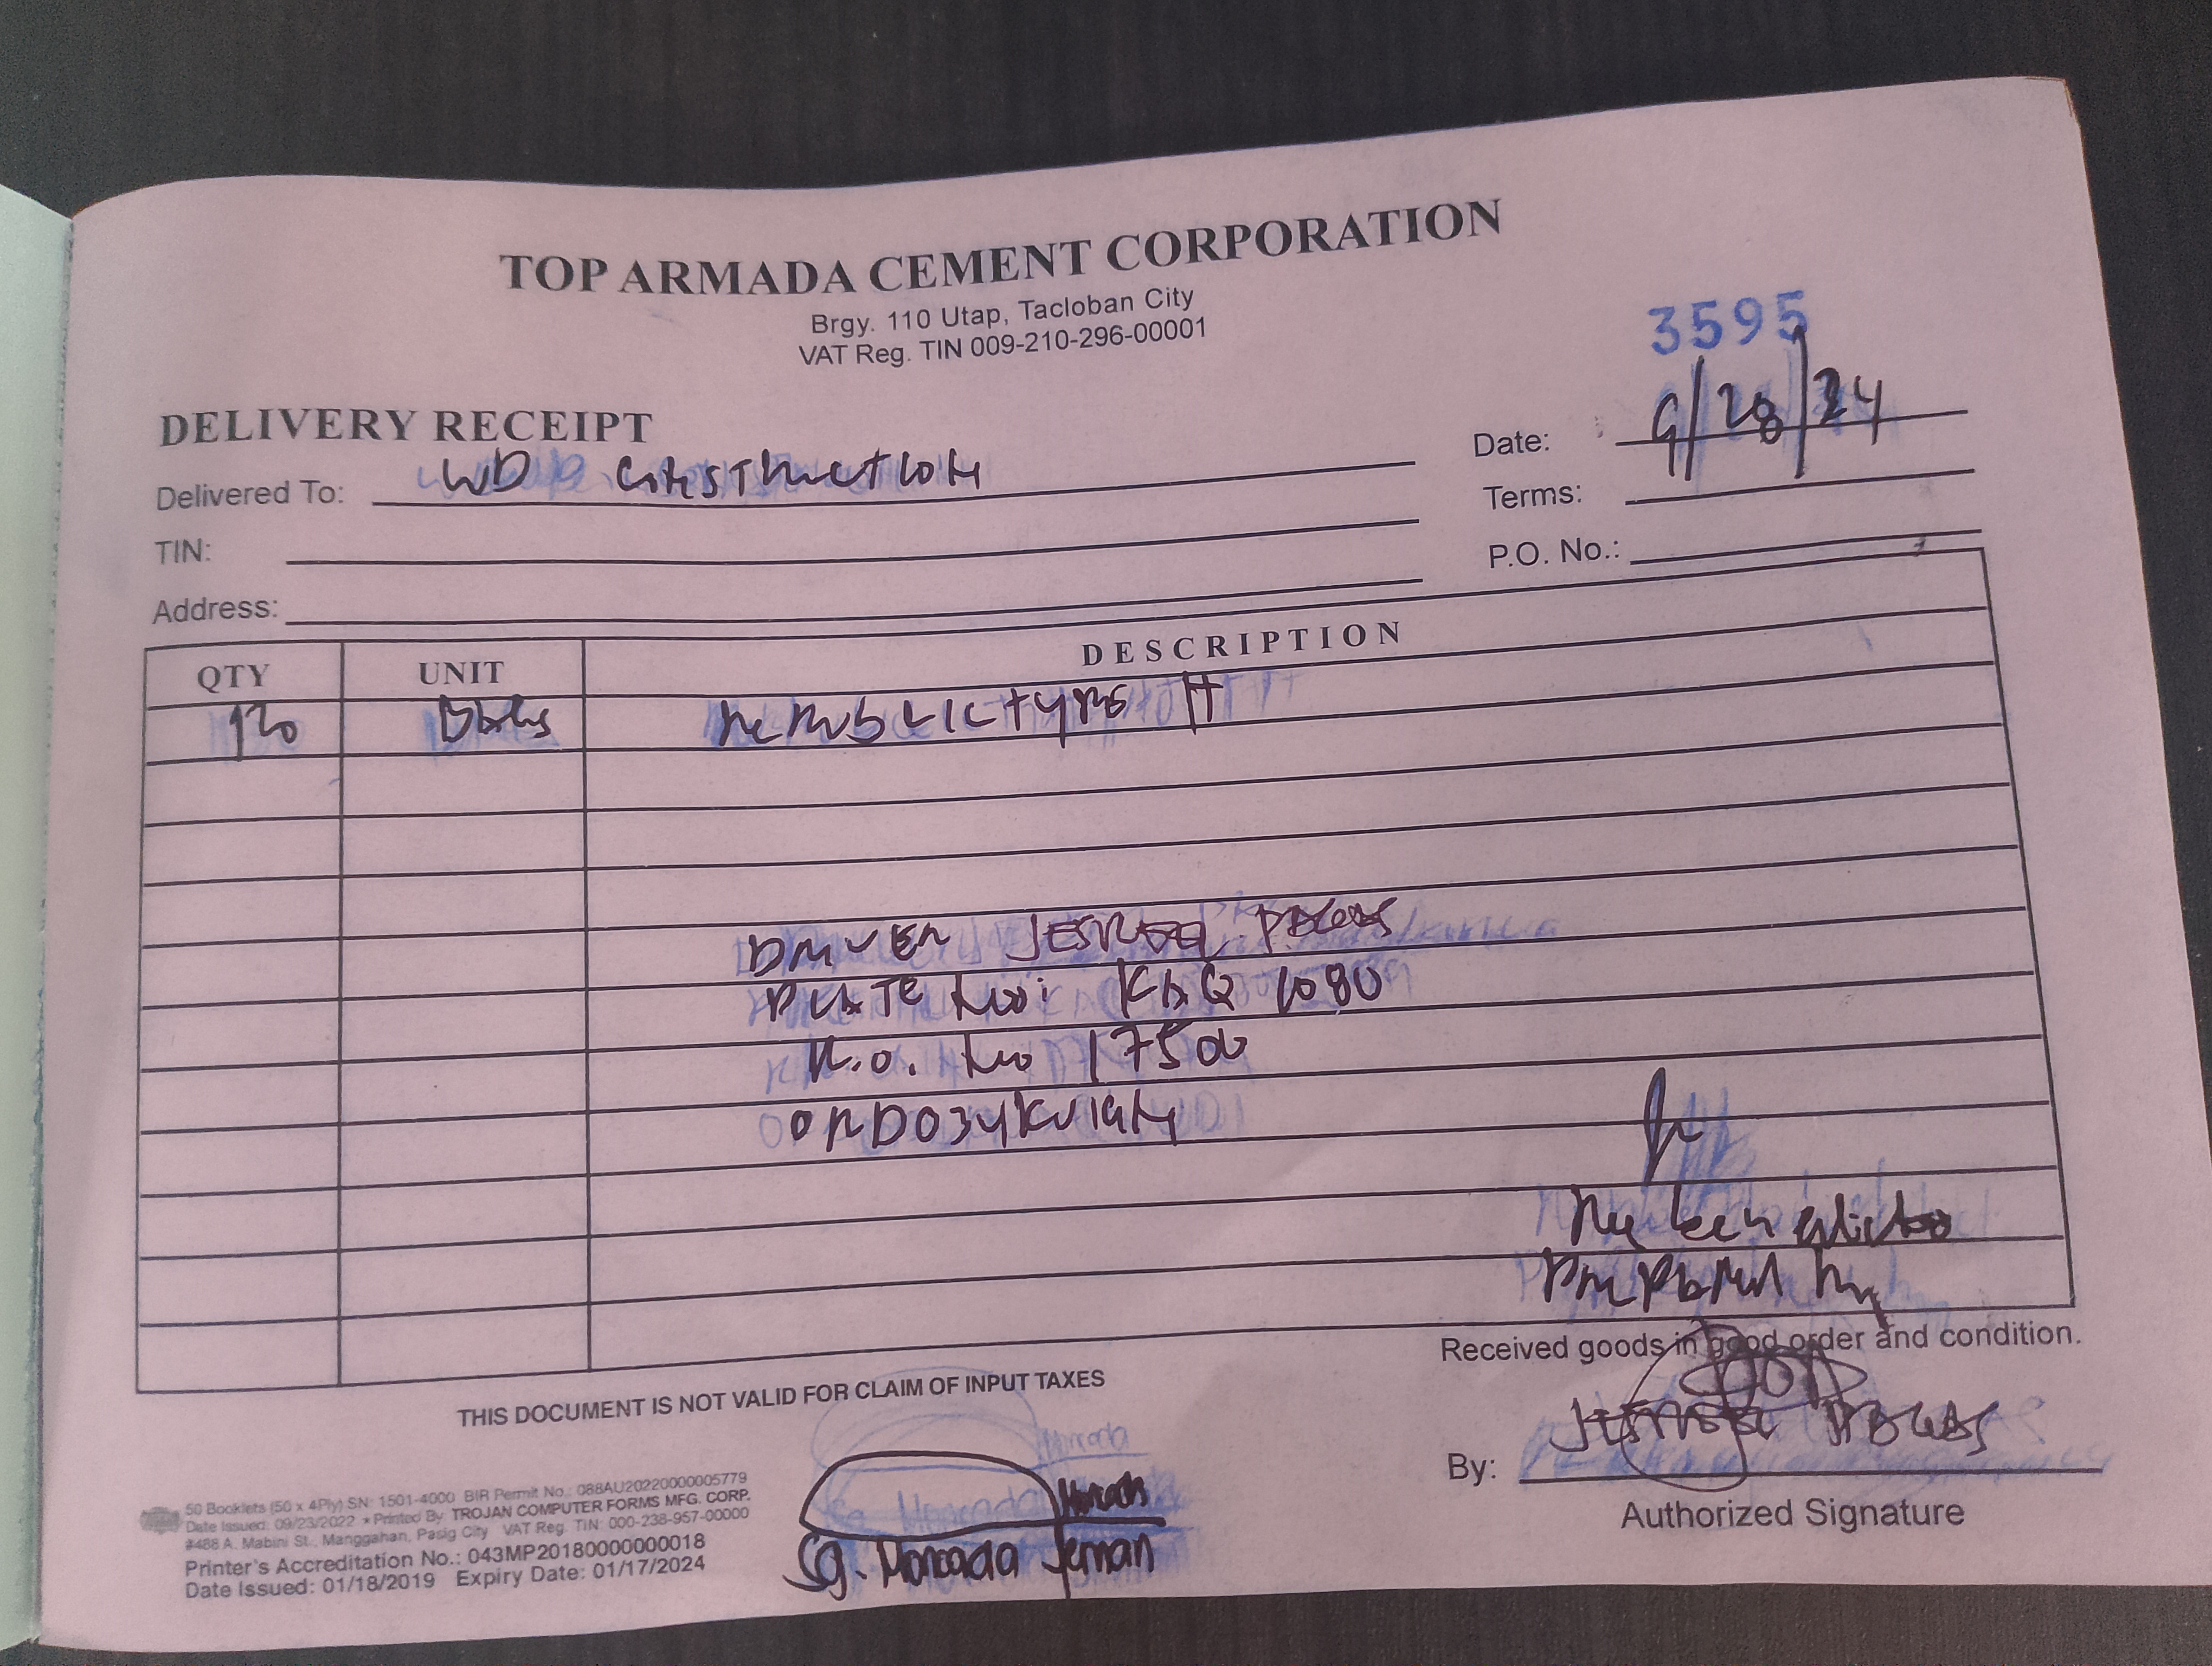 TOP ARMADA CEMENT CORPORATION
Brgy. 110 Utap, Tacloban City
VAT Reg. TIN 009-210-296-00001
3595
DELIVERY RECEIPT
Date: 9/28/24
Delivered To: WD Construction
Terms:
TIN:
P.O. No.:
Address:
QTY UNIT DESCRIPTION
120 Republic type
Driver
Plate No: KAQ 1080
No 17500
Prepared by
Received goods in good order and condition.
THIS DOCUMENT IS NOT VALID FOR CLAIM OF INPUT TAXES
By:
Authorized Signature
50 Booklets (50 x 4Ply) SN: 1501-4000 BIR Permit No.: 088AU20220000005779
Date Issued: 09/23/2022 • Printed By TROJAN COMPUTER FORMS MFG. CORP.
#488 A. Mabini St., Manggahan, Pasig City VAT Reg. TIN: 000-238-957-00000
Printer's Accreditation No.: 043MP20180000000018
Date Issued: 01/18/2019 Expiry Date: 01/17/2024
Sg. Moncada Jernan